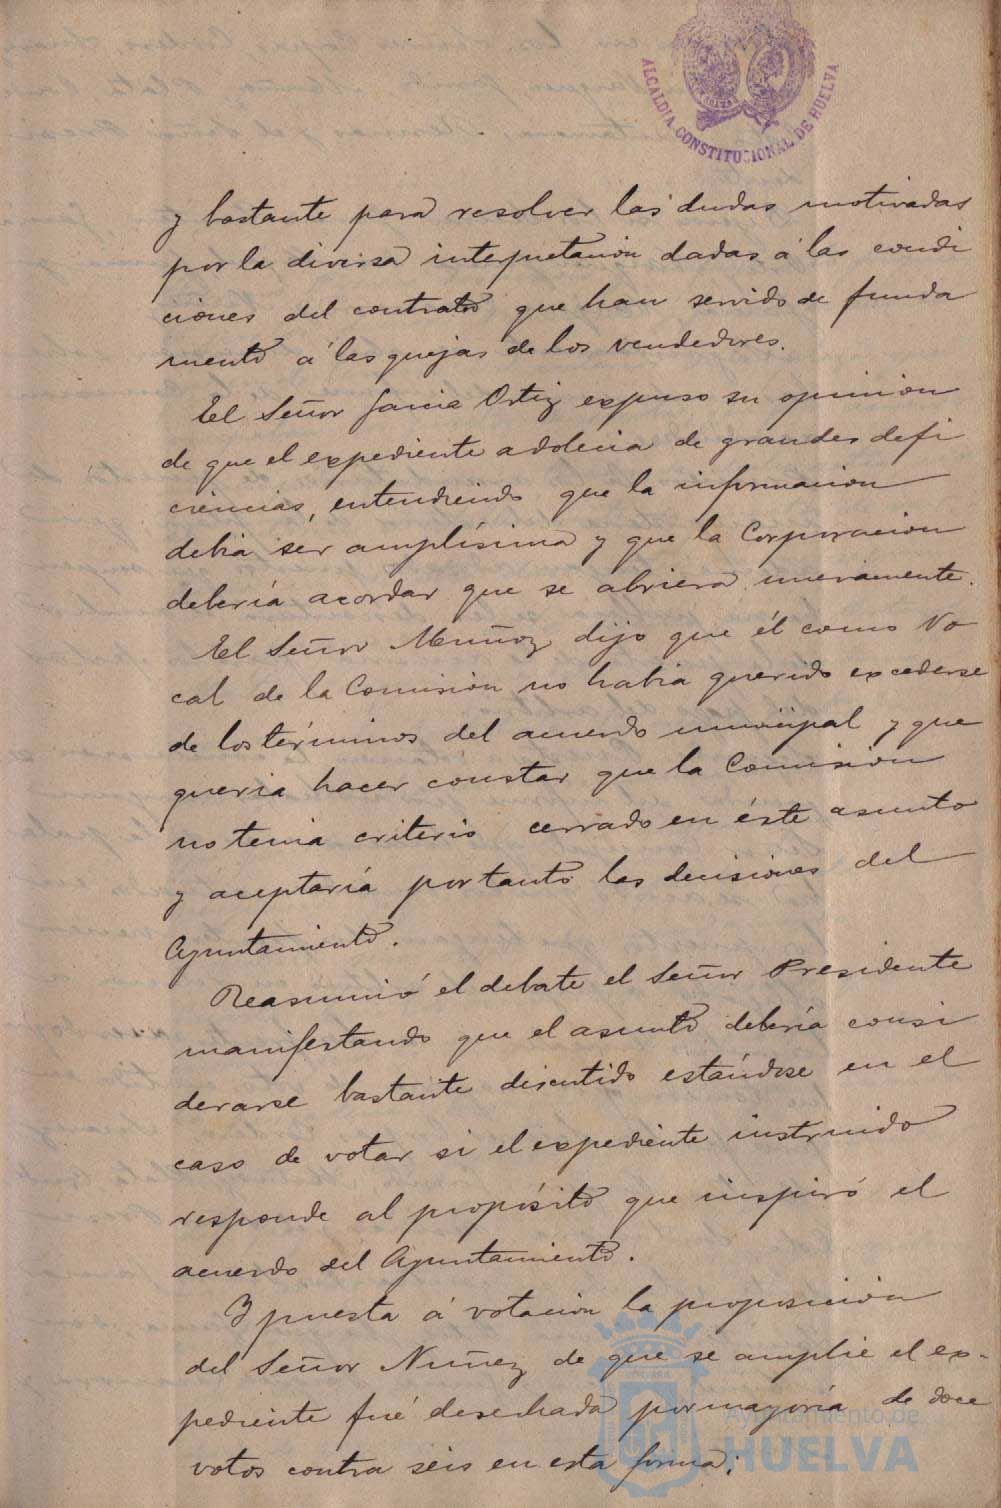 ALCALDIA CONSTITUCIONAL DE HUELVA
y bastante para resolver las dudas motivadas
por la diversa interpretación dadas á las condi
ciones del contrato que han servido de funda
mento á las quejas de los vendedores.
El Señor Garcia Ortiz expuso su opinion
de que el expediente adolecia de grandes defi
ciencias, entendiendo que la informacion
debia ser amplísima y que la Corporacion
debería acordar que se abriera nuevamente.
El Señor Muñoz dijo que él como Vo
cal de la Comisión no habia querido excederse
de los términos del acuerdo municipal y que
queria hacer constar que la Comision
no tenia criterio cerrado en éste asunto
y aceptaría por tanto las decisiones del
Ayuntamiento.
Reasumió el debate el Señor Presidente
manifestando que el asunto debería consi
derarse bastante discutido estándose en el
caso de votar si el expediente instruido
responde al propósito que inspiró el
acuerdo del Ayuntamiento.
Y puesta á votacion la proposicion
del Señor Nuñez de que se amplie el ex-
pediente fué desechada por mayoría de doce
votos contra seis en esta forma:
Ayuntamiento de
HUELVA